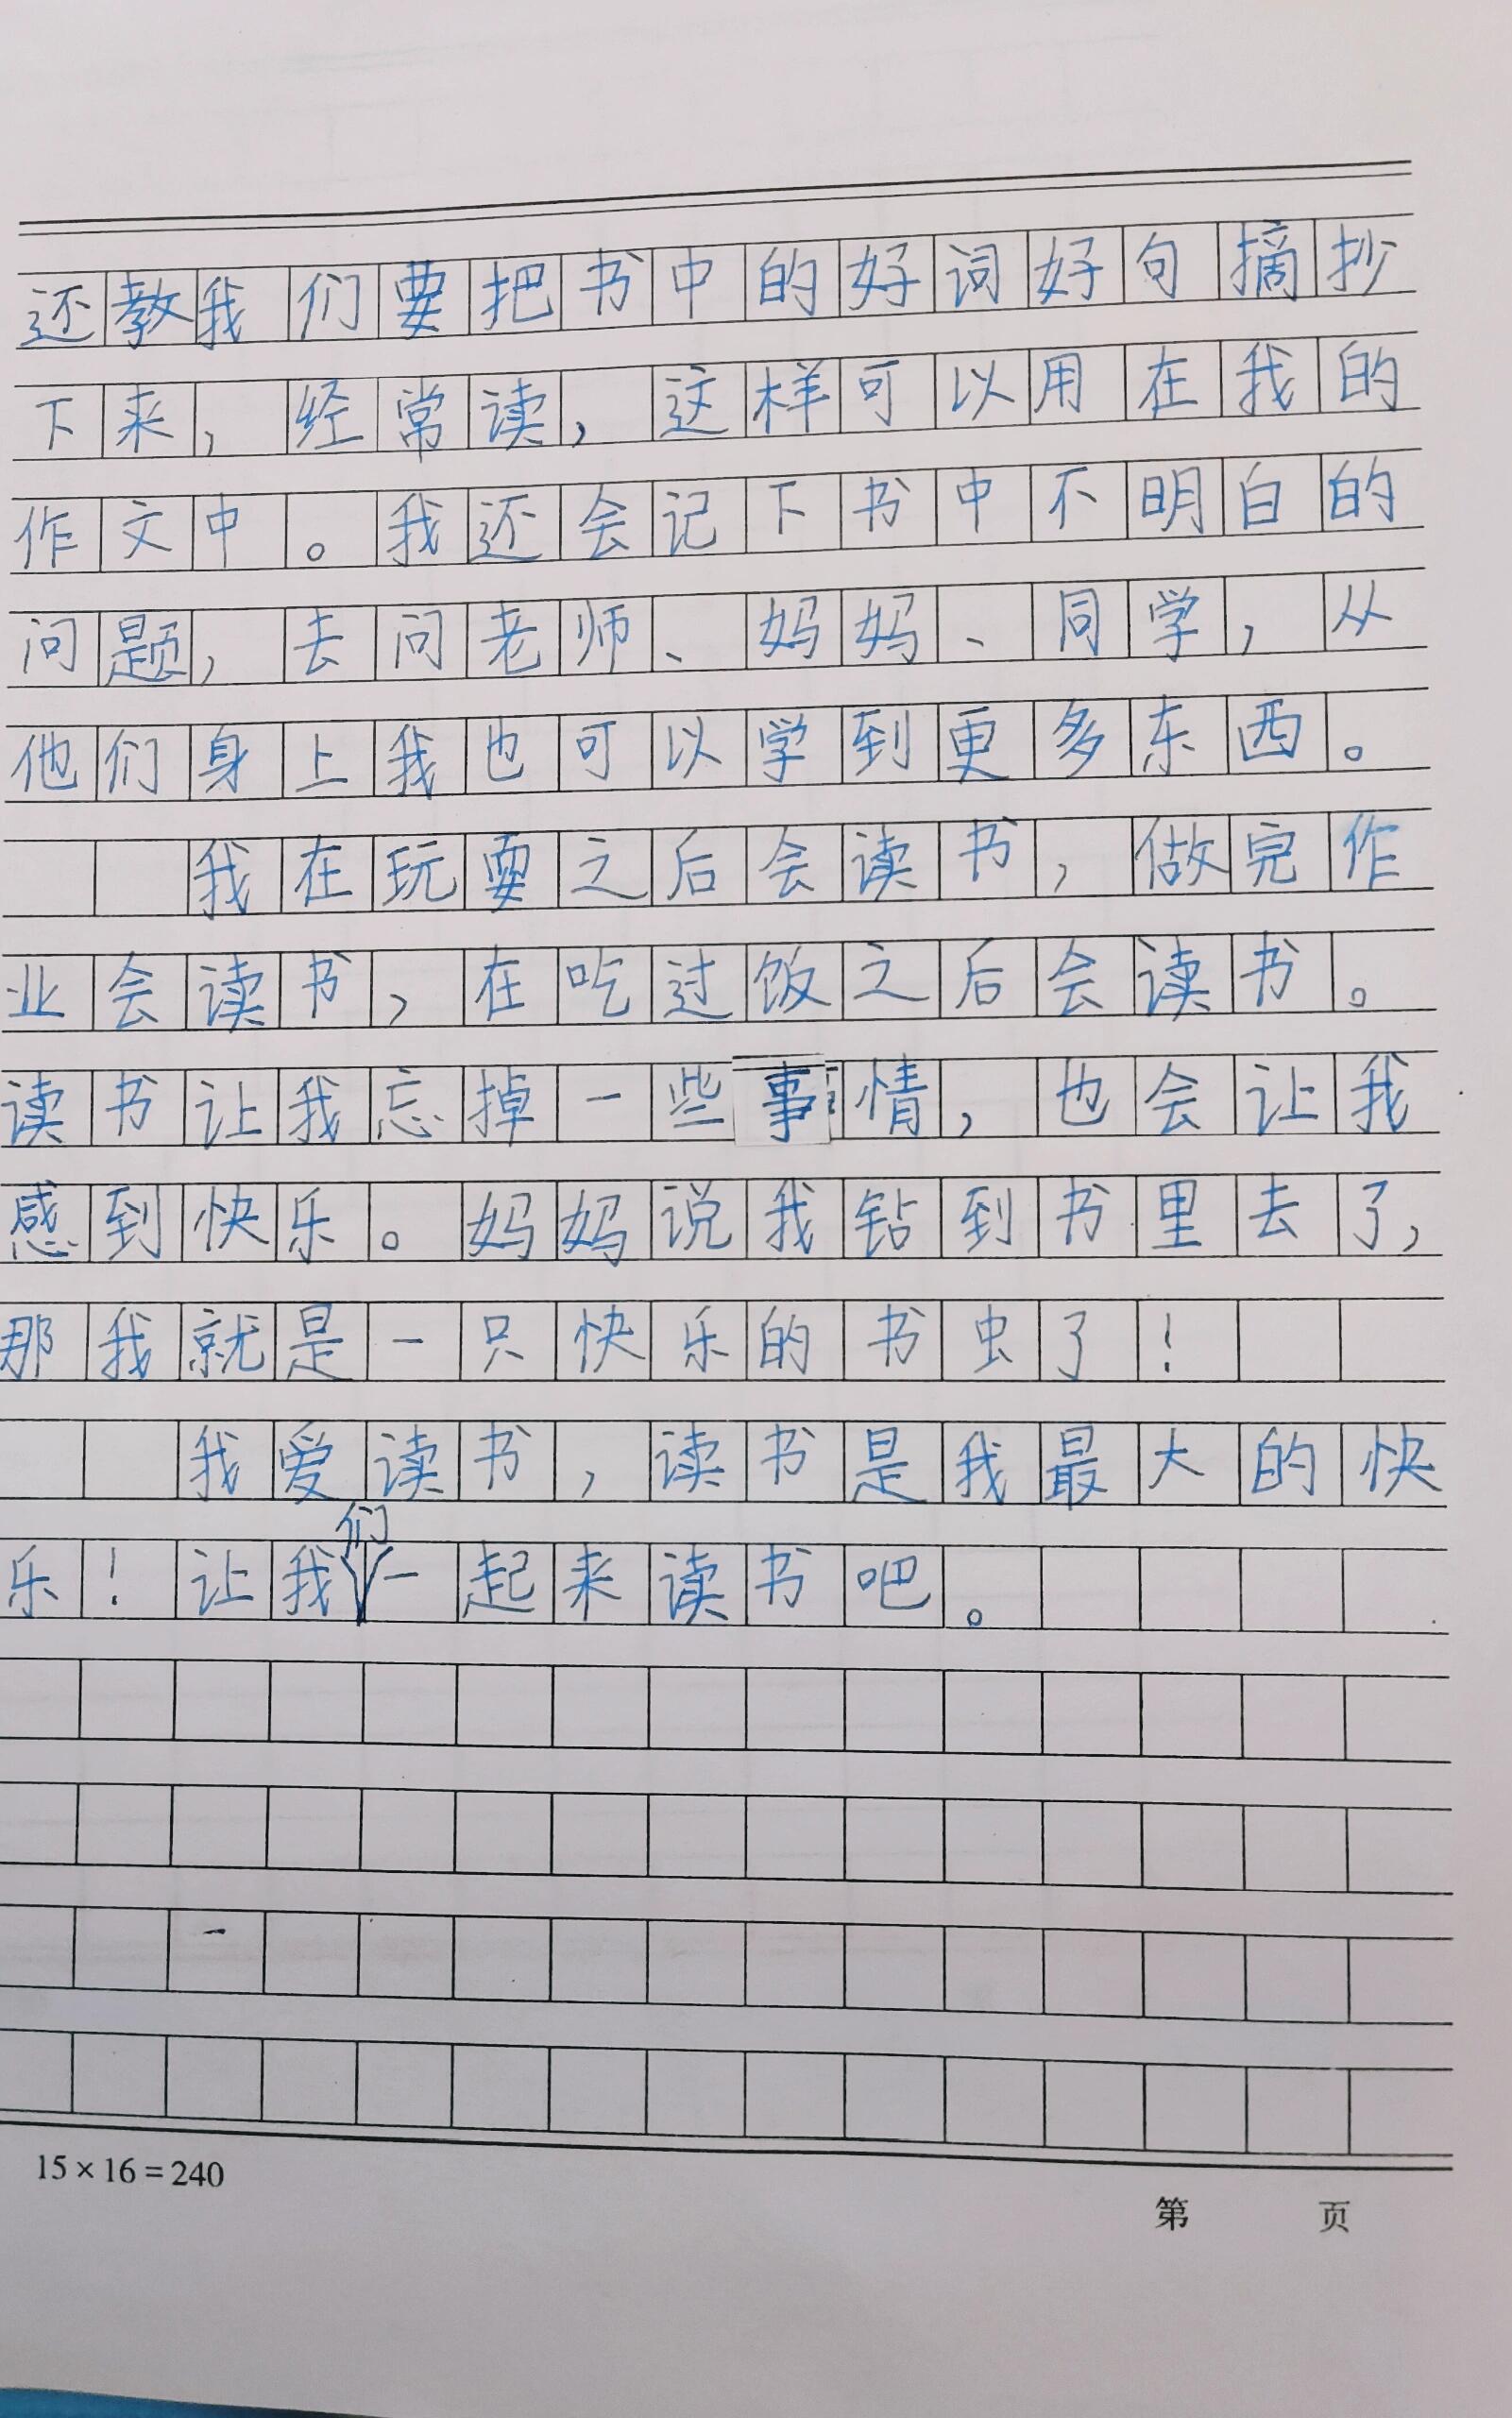 还教我们要把书中的好词好句摘抄
下来，经常读，这样可以用在我的
作文中。我还会记下书中不明白的
问题，去问老师、妈妈、同学，从
他们身上我也可以学到更多东西。
我在玩耍之后会读书，做完作
业会读书，在吃过饭之后会读书。
读书让我忘掉一些事情，也会让我
感到快乐。妈妈说我钻到书里去了，
那我就是一只快乐的书虫了！
我爱读书，读书是我最大的快
乐！让我们一起来读书吧。
15×16=240
第 页